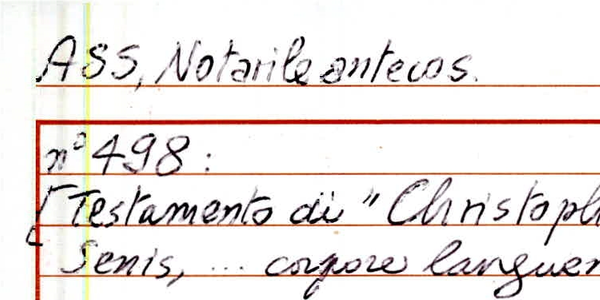 ASS, Notarile antecos.
n° 498:
[Testamento di "Christoph
Senis, ... corpore languen